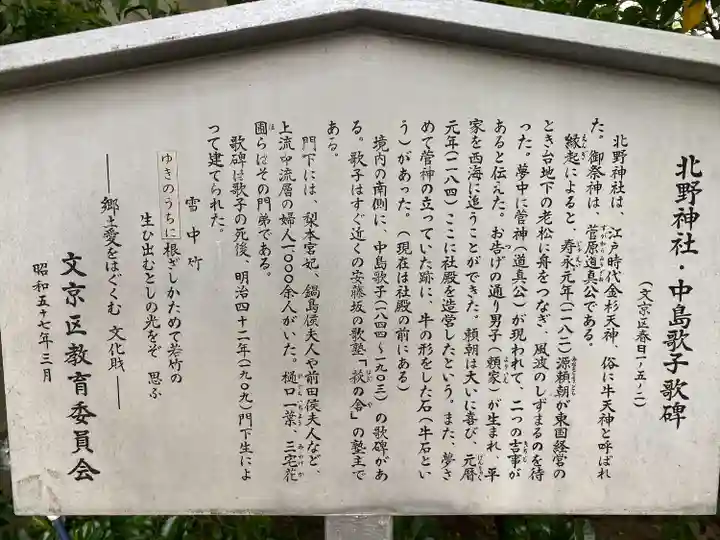 北野神社・中島歌子歌碑
(文京区春日一ノ五ノ二)
北野神社は、江戸時代金杉天神、俗に牛天神と呼ばれ
た。御祭神は、菅原道真公である。
縁起によると、寿永元年(一一八二)源頼朝が東国経営の
とき台地下の老松に舟をつなぎ、風波のしずまるのを待
った。夢中に菅神(道真公)が現われて、二つの吉事が
あると伝えた。お告げの通り男子(頼家)が生まれ、平
家を西海に追うことができた。頼朝は大いに喜び、元暦
元年(一一八四)ここに社殿を造営したという。また、夢さ
めて菅神の立っていた跡に、牛の形をした石(牛石とい
う)があった。(現在は社殿の前にある)
境内の南側に、中島歌子(一八四四〜一九〇三)の歌碑があ
る。歌子はすぐ近くの安藤坂の歌塾「萩の舎」の塾主で
ある。
門下には、梨本宮妃、鍋島侯夫人や前田侯夫人など、
上流中流層の婦人一〇〇〇余人がいた。樋口一葉、三宅花
圃らはその門弟である。
歌碑は歌子の死後、明治四十二年(一九〇九)門下生によ
って建てられた。
雪中竹
ゆきのうちに根ざしかためて若竹の
生ひ出むとしの光をぞ思ふ
――郷土愛をはぐくむ文化財――
文京区教育委員会
昭和五十七年三月